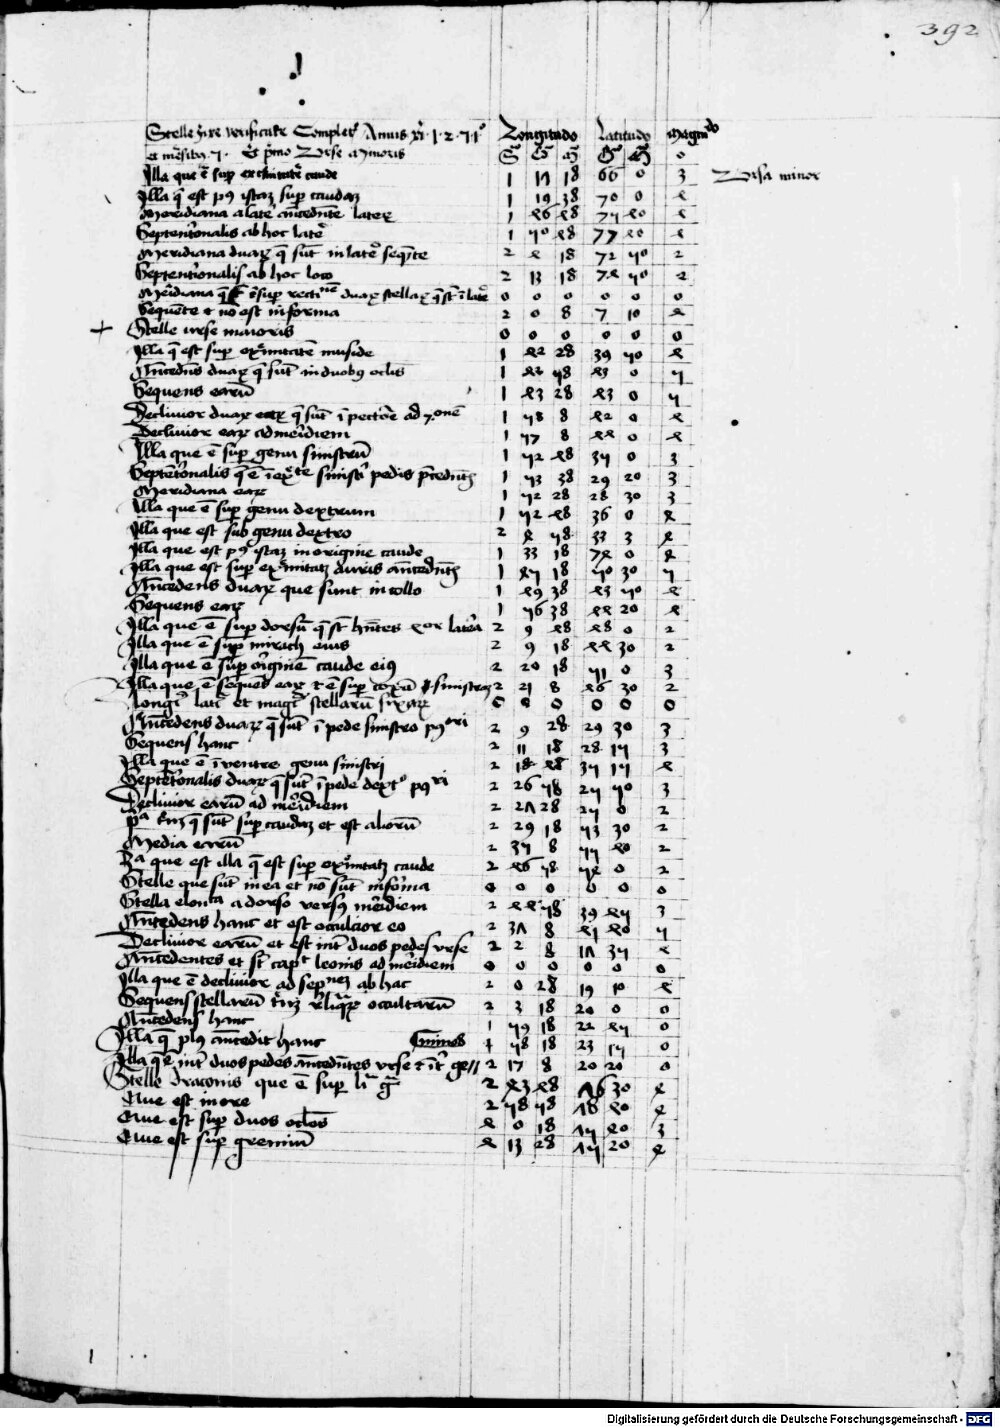 392
Stelle fixe verificate Complet Annis xi 1 2 7 1° Longitudo Latitudo magnitudo
et mensibus 7 Et primo Urse minoris S G M G M 0
Illa que ē sup extremitatē caude 1 17 18 66 0 3 Ursa minor
Illa q̄ est pꝰ istaz sup caudaz 1 19 38 70 0 4
Meridiana a latē antedente latere 1 46 48 74 40 4
Septentrionalis ab hoc latē 1 50 48 77 40 4
Meridiana duaꝝ q̄ sūt in latē seqnte 2 4 18 72 50 2
Septentrionalis ab hoc loco 2 13 18 74 50 2
Meridiana sup duaꝝ stellaꝝ q̄ st ī latē 0 0 0 0 0 0
Sequente t nō est in forma 2 0 8 7 10 4
Stelle urse maioris 0 0 0 0 0 0
Illa q̄ est sup extmitatē muside 1 42 28 39 50 4
Antedens duaꝝ q̄ sūt in duobꝰ oclis 1 42 58 43 0 5
Sequens earū 1 43 28 43 0 5
Declivior duaꝝ eaꝝ q̄ sūt ī pectore ad 7onē 1 58 8 42 0 4
Declivior eaꝝ ad meridiem 1 57 8 44 0 4
Illa que ē sup genu sinistrū 1 52 48 35 0 3
Septetrionalis q̄ ē ī exte sinistri pedis p̄cedentis 1 53 38 29 20 3
Meridiana eaꝝ 1 52 28 28 30 3
Illa que ē sup genu dextrum 1 52 48 36 0 4
Illa que est sub genu dextro 2 4 58 33 3 4
Illa que est pꝰ istaz in origine caude 1 33 18 74 0 4
Illa que est sup extmitatz auris antedentis 1 45 18 50 30 5
Antedens duaꝝ que sunt in collo 1 49 38 43 50 4
Sequens eaꝝ 1 56 38 44 20 4
Illa que ē sup dorsū q̄ st hntes 4or latera 2 9 48 48 0 2
Illa que ē sup mirach eius 2 9 18 44 30 2
Illa que ē sup originē caude eiꝰ 2 20 18 51 0 3
Illa que ē sequens eaꝝ t ē sup coxā sinistraz 2 21 8 46 30 2
Longi lati et magi stellarū fixaꝝ 0 0 0 0 0 0
Antedens duaꝝ q̄ sūt ī pede sinistro pꝰori 2 9 28 29 30 3
Sequens hanc 2 11 18 28 15 3
Illa que ē ī ventre genu sinistri 2 18 48 35 15 4
Septetrionalis duaꝝ q̄ sūt ī pede dext° pꝰri 2 26 58 25 50 3
Declivior earū ad meridiem 2 27 28 25 0 2
pᵃ triū q̄ sūt sup caudaz et est aliorū 2 29 18 53 30 2
Media earū 2 35 8 55 40 2
3ᵃ que est illa q̄ est sup extmitatz caude 2 46 58 54 0 2
Stelle que sūt in ea et nō sūt in forma 0 0 0 0 0 0
Stella elonta a dorso versꝰ meridiem 2 44 58 39 45 3
Antedens hanc et est occulcior eo 2 37 8 41 40 5
Declivior earū et est int duos pedes urse 2 2 8 17 35 4
Antedentes et st capt leonis ad meridiem 0 0 0 0 0 0
Illa que ē declivior ad sepnez ab hac 2 0 28 19 10 4
Sequens stellarū triū reliquaꝝ occultarū 2 3 18 20 0 0
Antedens hanc 1 59 18 22 45 0
Illa q̄ plꝰ antedit hanc Geminos 1 58 18 23 15 0
Illa q̄ ē int duos pedes antedentes urse t īt ge// 2 17 8 20 20 0
Stelle draconis que ē sup 2 43 48 76 30 4
Que est in ore 2 58 58 78 40 4
Que est sup duos oclos 4 0 18 75 40 3
Que est sup gremiū 4 13 28 75 20 4
1
Digitalisierung gefördert durch die Deutsche Forschungsgemeinschaft - DFG